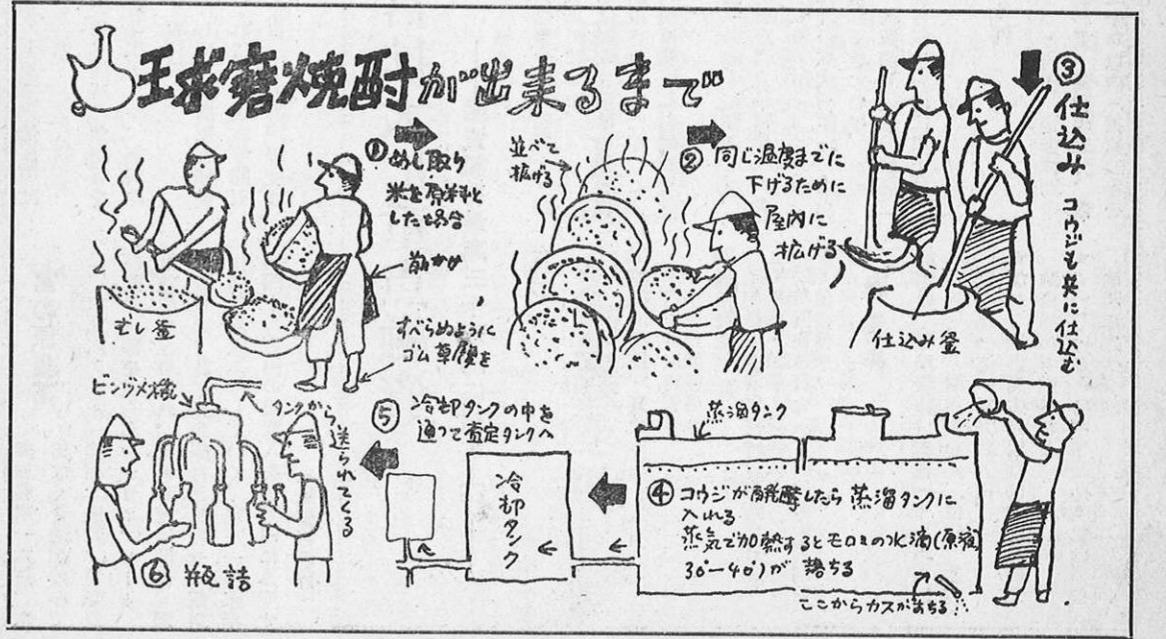 球磨焼酎が出来るまで
① めし取り
米を原料と
した場合
前かけ
すべらぬように
ゴム草履を
むし釜
並べて
拡げる
② 同じ温度までに
下げるために
屋内に
拡げる
③ 仕込み
コウジも共に仕込む
仕込み釜
蒸溜タンク
④ コウジが醗酵したら蒸溜タンクに
入れる
蒸気で加熱するとモロミの水滴(原液
30°—40°)が落ちる
ここからカスが落ちる
⑤ 冷却タンクの中を
通つて査定タンクへ
冷却タンク
ビンヅメ機
タンクから送られてくる
⑥ 瓶詰